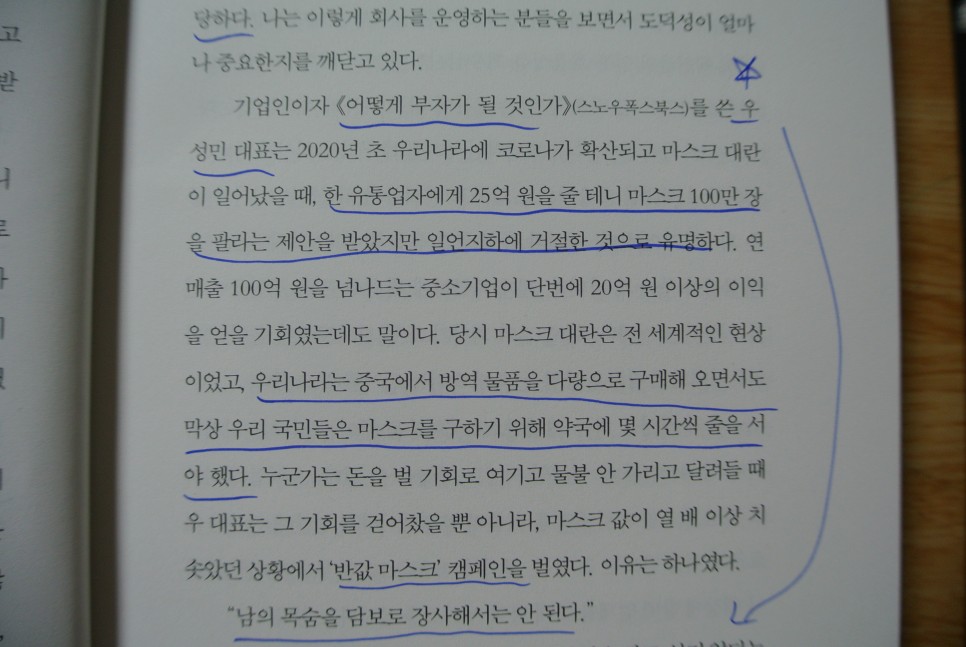 당하다. 나는 이렇게 회사를 운영하는 분들을 보면서 도덕성이 얼마
나 중요한지를 깨닫고 있다.
기업인이자 《어떻게 부자가 될 것인가》(스노우폭스북스)를 쓴 우
성민 대표는 2020년 초 우리나라에 코로나가 확산되고 마스크 대란
이 일어났을 때, 한 유통업자에게 25억 원을 줄 테니 마스크 100만 장
을 팔라는 제안을 받았지만 일언지하에 거절한 것으로 유명하다. 연
매출 100억 원을 넘나드는 중소기업이 단번에 20억 원 이상의 이익
을 얻을 기회였는데도 말이다. 당시 마스크 대란은 전 세계적인 현상
이었고, 우리나라는 중국에서 방역 물품을 다량으로 구매해 오면서도
막상 우리 국민들은 마스크를 구하기 위해 약국에 몇 시간씩 줄을 서
야 했다. 누군가는 돈을 벌 기회로 여기고 물불 안 가리고 달려들 때
우 대표는 그 기회를 걷어찼을 뿐 아니라, 마스크 값이 열 배 이상 치
솟았던 상황에서 ‘반값 마스크’ 캠페인을 벌였다. 이유는 하나였다.
“남의 목숨을 담보로 장사해서는 안 된다.”